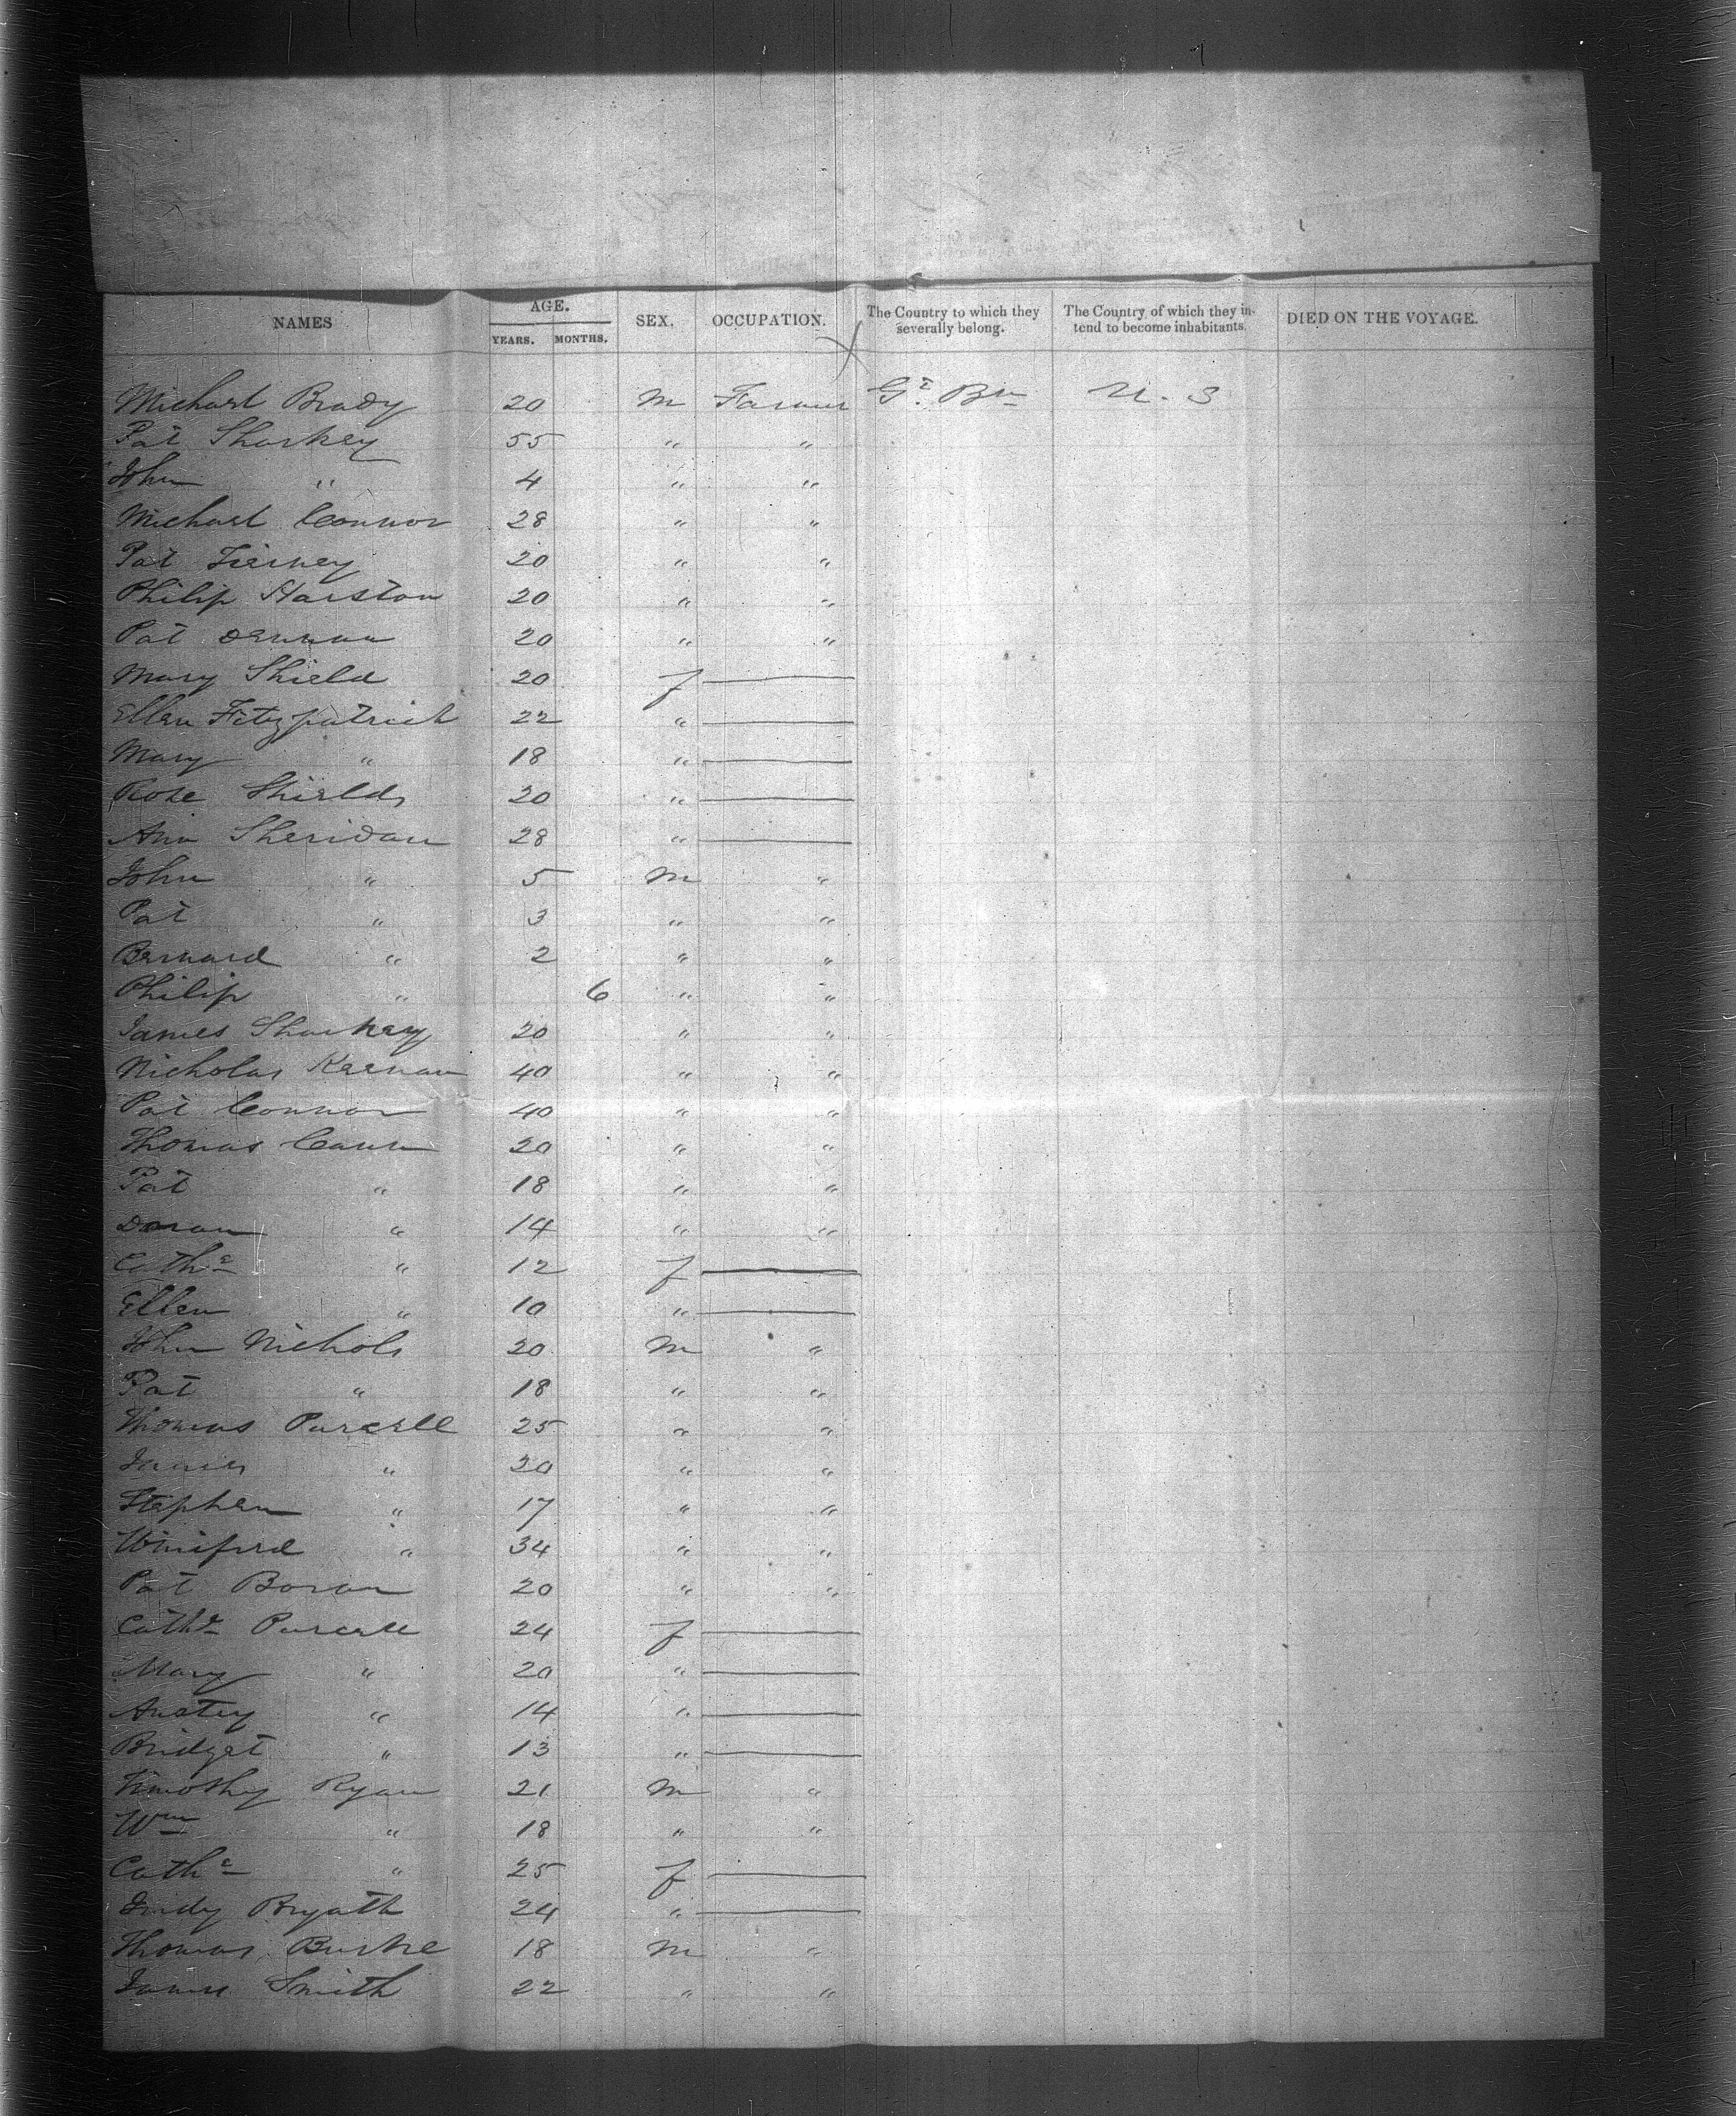 NAMES AGE. YEARS. MONTHS. SEX. OCCUPATION. The Country to which they severally belong. The Country of which they intend to become inhabitants. DIED ON THE VOYAGE.
Michael Brady 20 M Farmer Gt. Bn U. S
Pat Sharkey 55 " "
John " 4 " "
Michael Connor 28 " "
Pat Tierney 20 " "
Philip Harston 20 " "
Pat 20 " "
Mary Shield 20 f —
Ellen Fitzpatrick 22 " —
Mary " 18 " —
Rose Shields 20 " —
Ann Sheridan 28 " —
John " 5 M "
Pat " 3 " "
Bernard " 2 " "
Philip " 6 " "
James Sharkey 20 " "
Nicholas Keenan 40 " "
Pat Connor 40 " "
Thomas 20 " "
Pat " 18 " "
" 14 " "
Cathe " 12 f —
Ellen " 10 " —
John Nichols 20 M "
Pat " 18 " "
Thomas Purcell 25 " "
James " 20 " "
Stephen " 17 " "
Winifred " 34 " "
Pat Boran 20 " "
Cathe Purcell 24 f —
Mary " 20 " —
Anstey " 14 " —
Bridget " 13 " —
Timothy Ryan 21 M "
Wm " 18 " "
Cathe " 25 f —
Judy 24 " —
Thomas Burke 18 M "
James Smith 22 " "